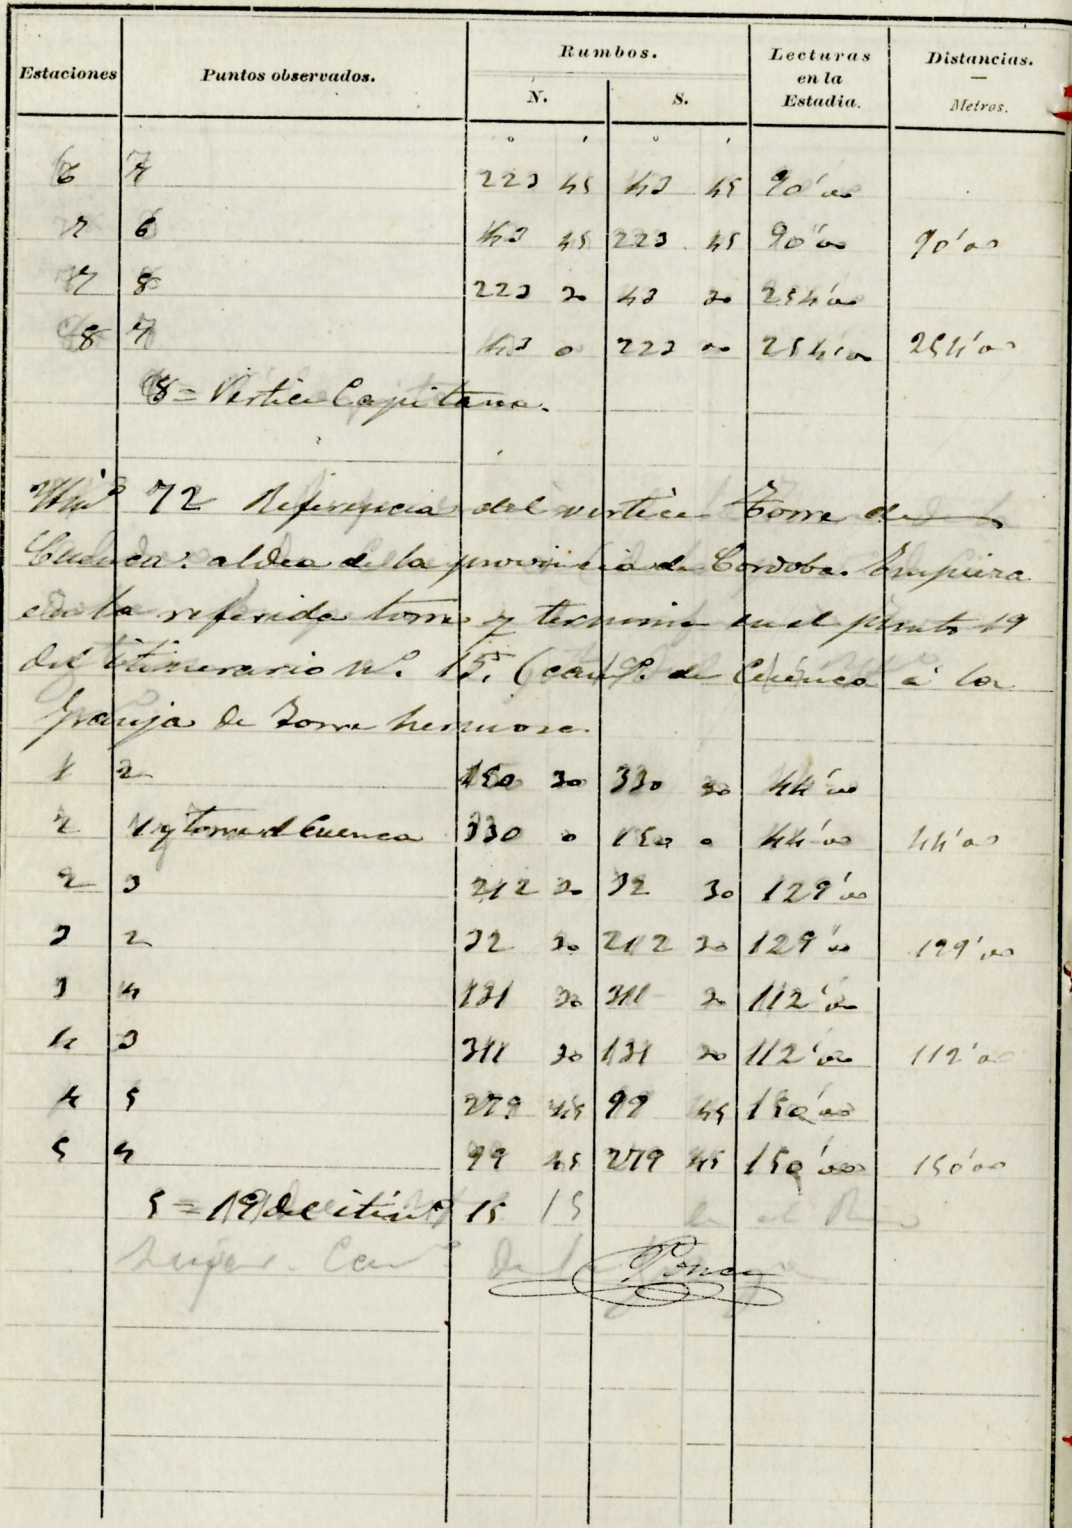 Estaciones Puntos observados. Rumbos. N. S. Lecturas en la Estadia. Distancias. — Metros.
° ' ° '
6 7 223 45 43 45 90'00
7 6 43 45 223 45 90'00 90'00
7 8 223 30 43 30 254'00
8 7 43 0 223 00 254'00 254'00
8 = Vertice Capitana.
72 Referencia del vertice Torre de
Cuenca: aldea de la provincia de Cordoba. Empieza
en la referida torre y termina en el punto 19
del itinerario nº. 15. (camº. de Cuenca á la
Granja de Torre hermosa
1 2 150 30 330 30 44'00
2 1 y torre d Cuenca 330 0 150 0 44'00 44'00
2 3 212 30 32 30 129'00
3 2 32 30 212 30 129'00 129'00
3 4 131 30 311 30 112'00
4 3 311 30 131 30 112'00 112'00
4 5 279 45 99 45 150'00
5 4 99 45 279 45 150'00 150'00
5 = 19 del itinº 15 15